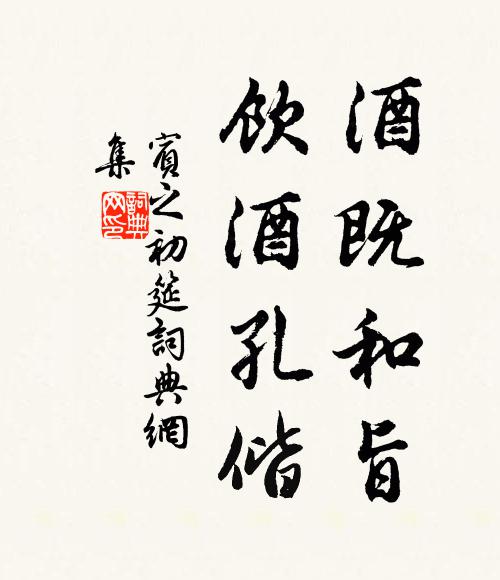 酒既和旨
飲酒孔偕
賓之初筵詞典網
集
詞典
网印